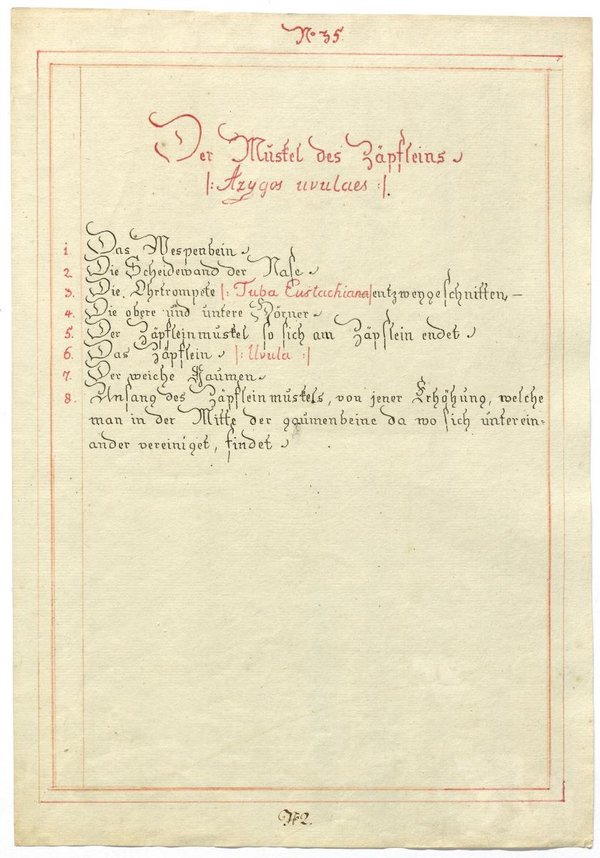 No 35.
Der Muſkel des Zäpfleins
|: Azygos uvulaes :|.
1. Das Weſpenbein
2. Die Scheidewand der Naſe
3. Die Ohrtrompete |: Tuba Eustachiana :| entzweygeſchnitten —
4. Die obere und untere Hörner
5. Der Zäpfleinmuſkel ſo ſich am Zäpflein endet
6. Das Zäpflein |: Uvula :|
7. Der weiche Gaumen
8. Anfang des Zäpfleinmuſkels, von jener Erhöhung, welche
man in der Mitte der gaumenbeine da wo ſich unterein-
ander vereiniget, findet